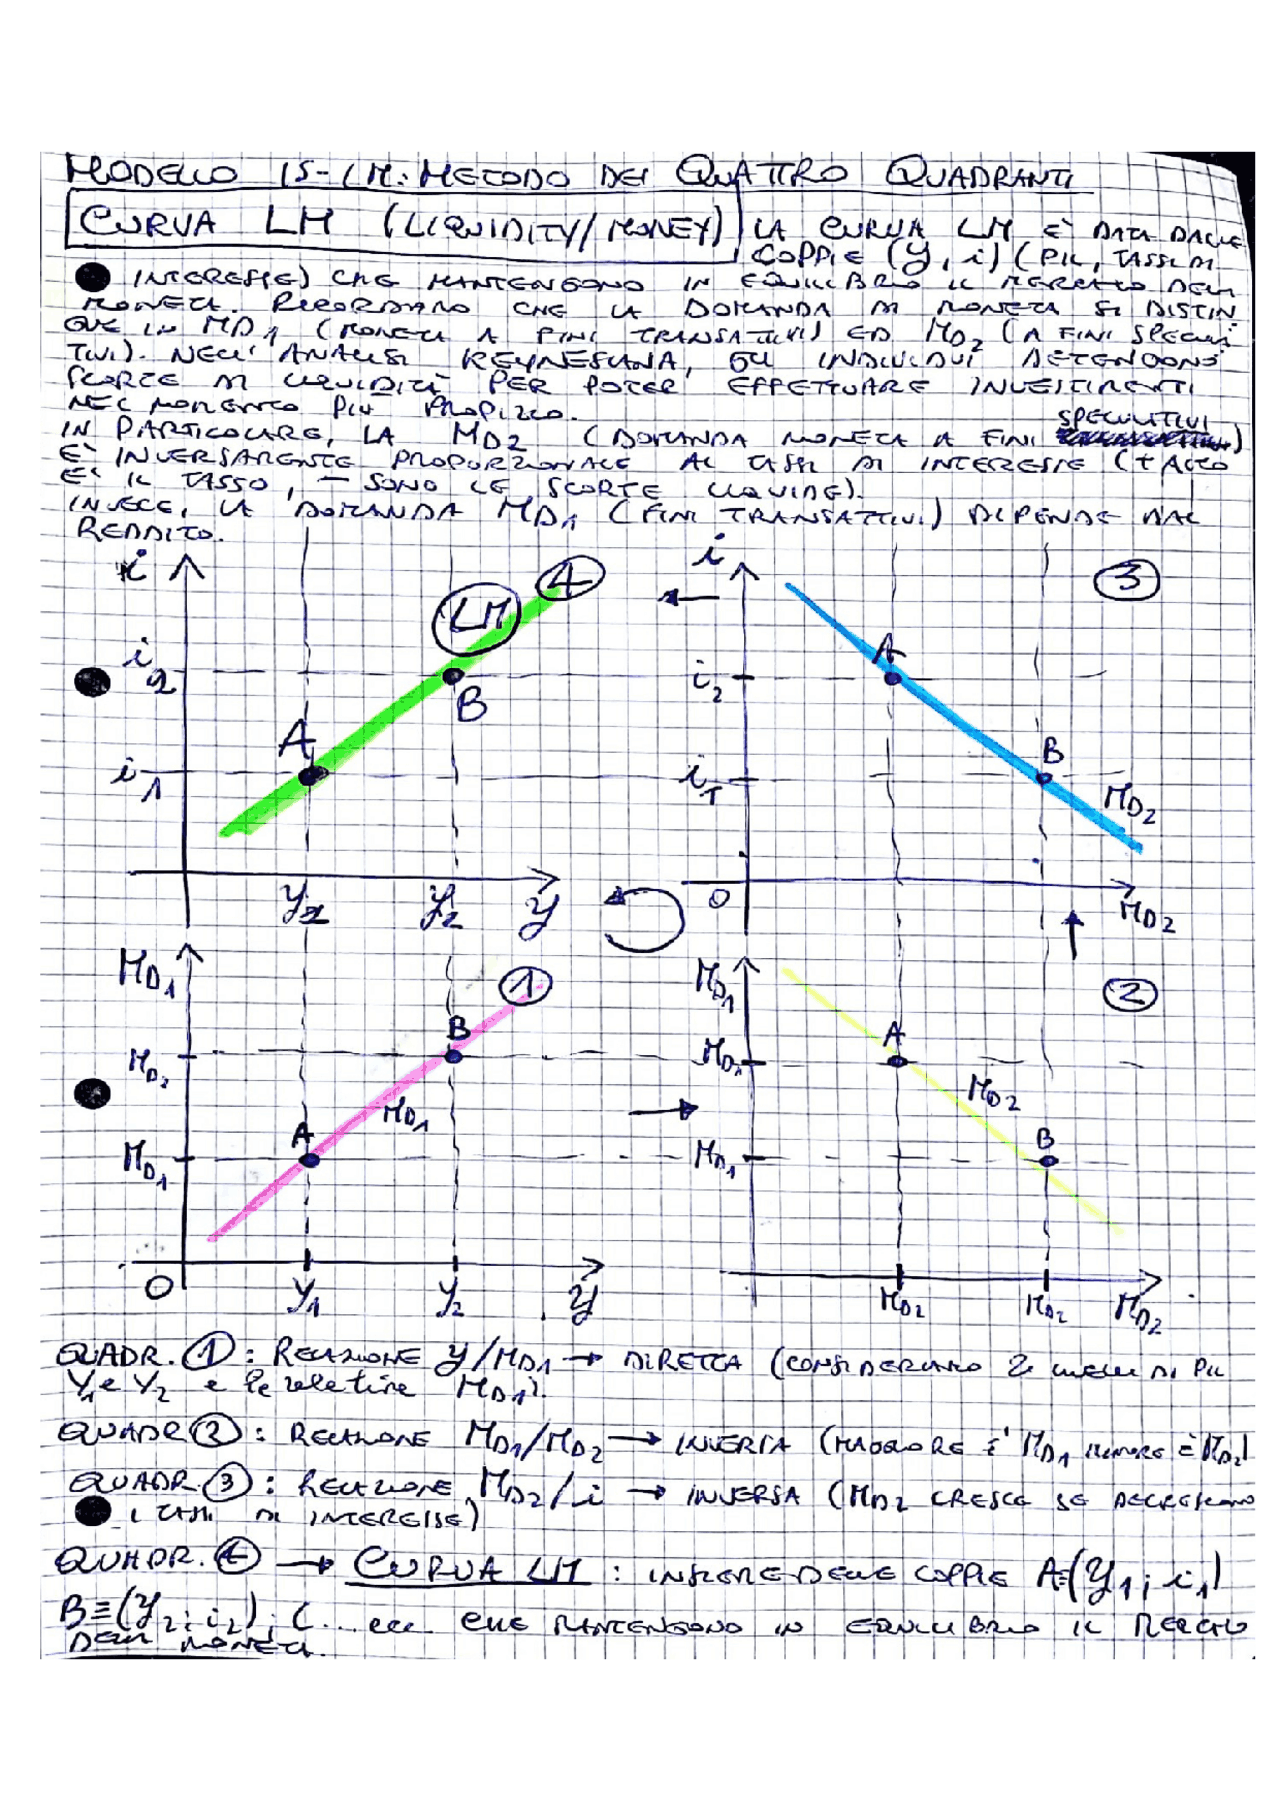 MODELLO IS-LM: METODO DEI QUATTRO QUADRANTI
CURVA LM (LIQUIDITY/MONEY)
LA CURVA LM È DATA DALLE
COPPIE (Y, i) (PIL, TASSI DI
INTERESSE) CHE MANTENGONO IN EQUILIBRIO IL MERCATO DELLA
MONETA. RICORDIAMO CHE LA DOMANDA DI MONETA SI DISTIN
GUE IN MD1 (MONETA A FINI TRANSATTIVI) ED MD2 (A FINI SPECULA
TIVI). NELL'ANALISI KEYNESIANA, GLI INDIVIDUI DETENGONO
SCORTE DI LIQUIDITÀ PER POTER EFFETTUARE INVESTIMENTI
NEL MOMENTO PIÙ PROPIZIO.
SPECULATIVI
IN PARTICOLARE, LA MD2 (DOMANDA MONETA A FINI )
È INVERSAMENTE PROPORZIONALE AI TASSI DI INTERESSE (+ ALTO
È IL TASSO, - SONO LE SCORTE LIQUIDE).
INVECE, LA DOMANDA MD1 (FINI TRANSATTIVI) DIPENDE DAL
REDDITO.
i
4
LM
i2
B
A
i1
Y2
Y2
Y
i
3
A
i2
B
i1
MD2
0
MD2
MD1
1
B
MD2
MD1
A
MD1
0
Y1
Y2
Y
MD1
2
A
MD1
MD2
B
MD1
MD2
MD2
MD2
QUADR. 1: RELAZIONE Y/MD1 → DIRETTA (CONSIDERIAMO 2 LIVELLI DI PIL
Y1 e Y2 e le relative MD1).
QUADR 2: RELAZIONE MD1/MD2 → INVERSA (MAGGIORE È MD1 MINORE È MD2)
QUADR. 3: RELAZIONE MD2/i → INVERSA (MD2 CRESCE SE DECRESCONO
I TASSI DI INTERESSE)
QUADR. 4 → CURVA LM: INSIEME DELLE COPPIE A≡(Y1; i1)
B≡(Y2; i2); C... ecc. CHE MANTENGONO IN EQUILIBRIO IL MERCATO
DELLA MONETA.